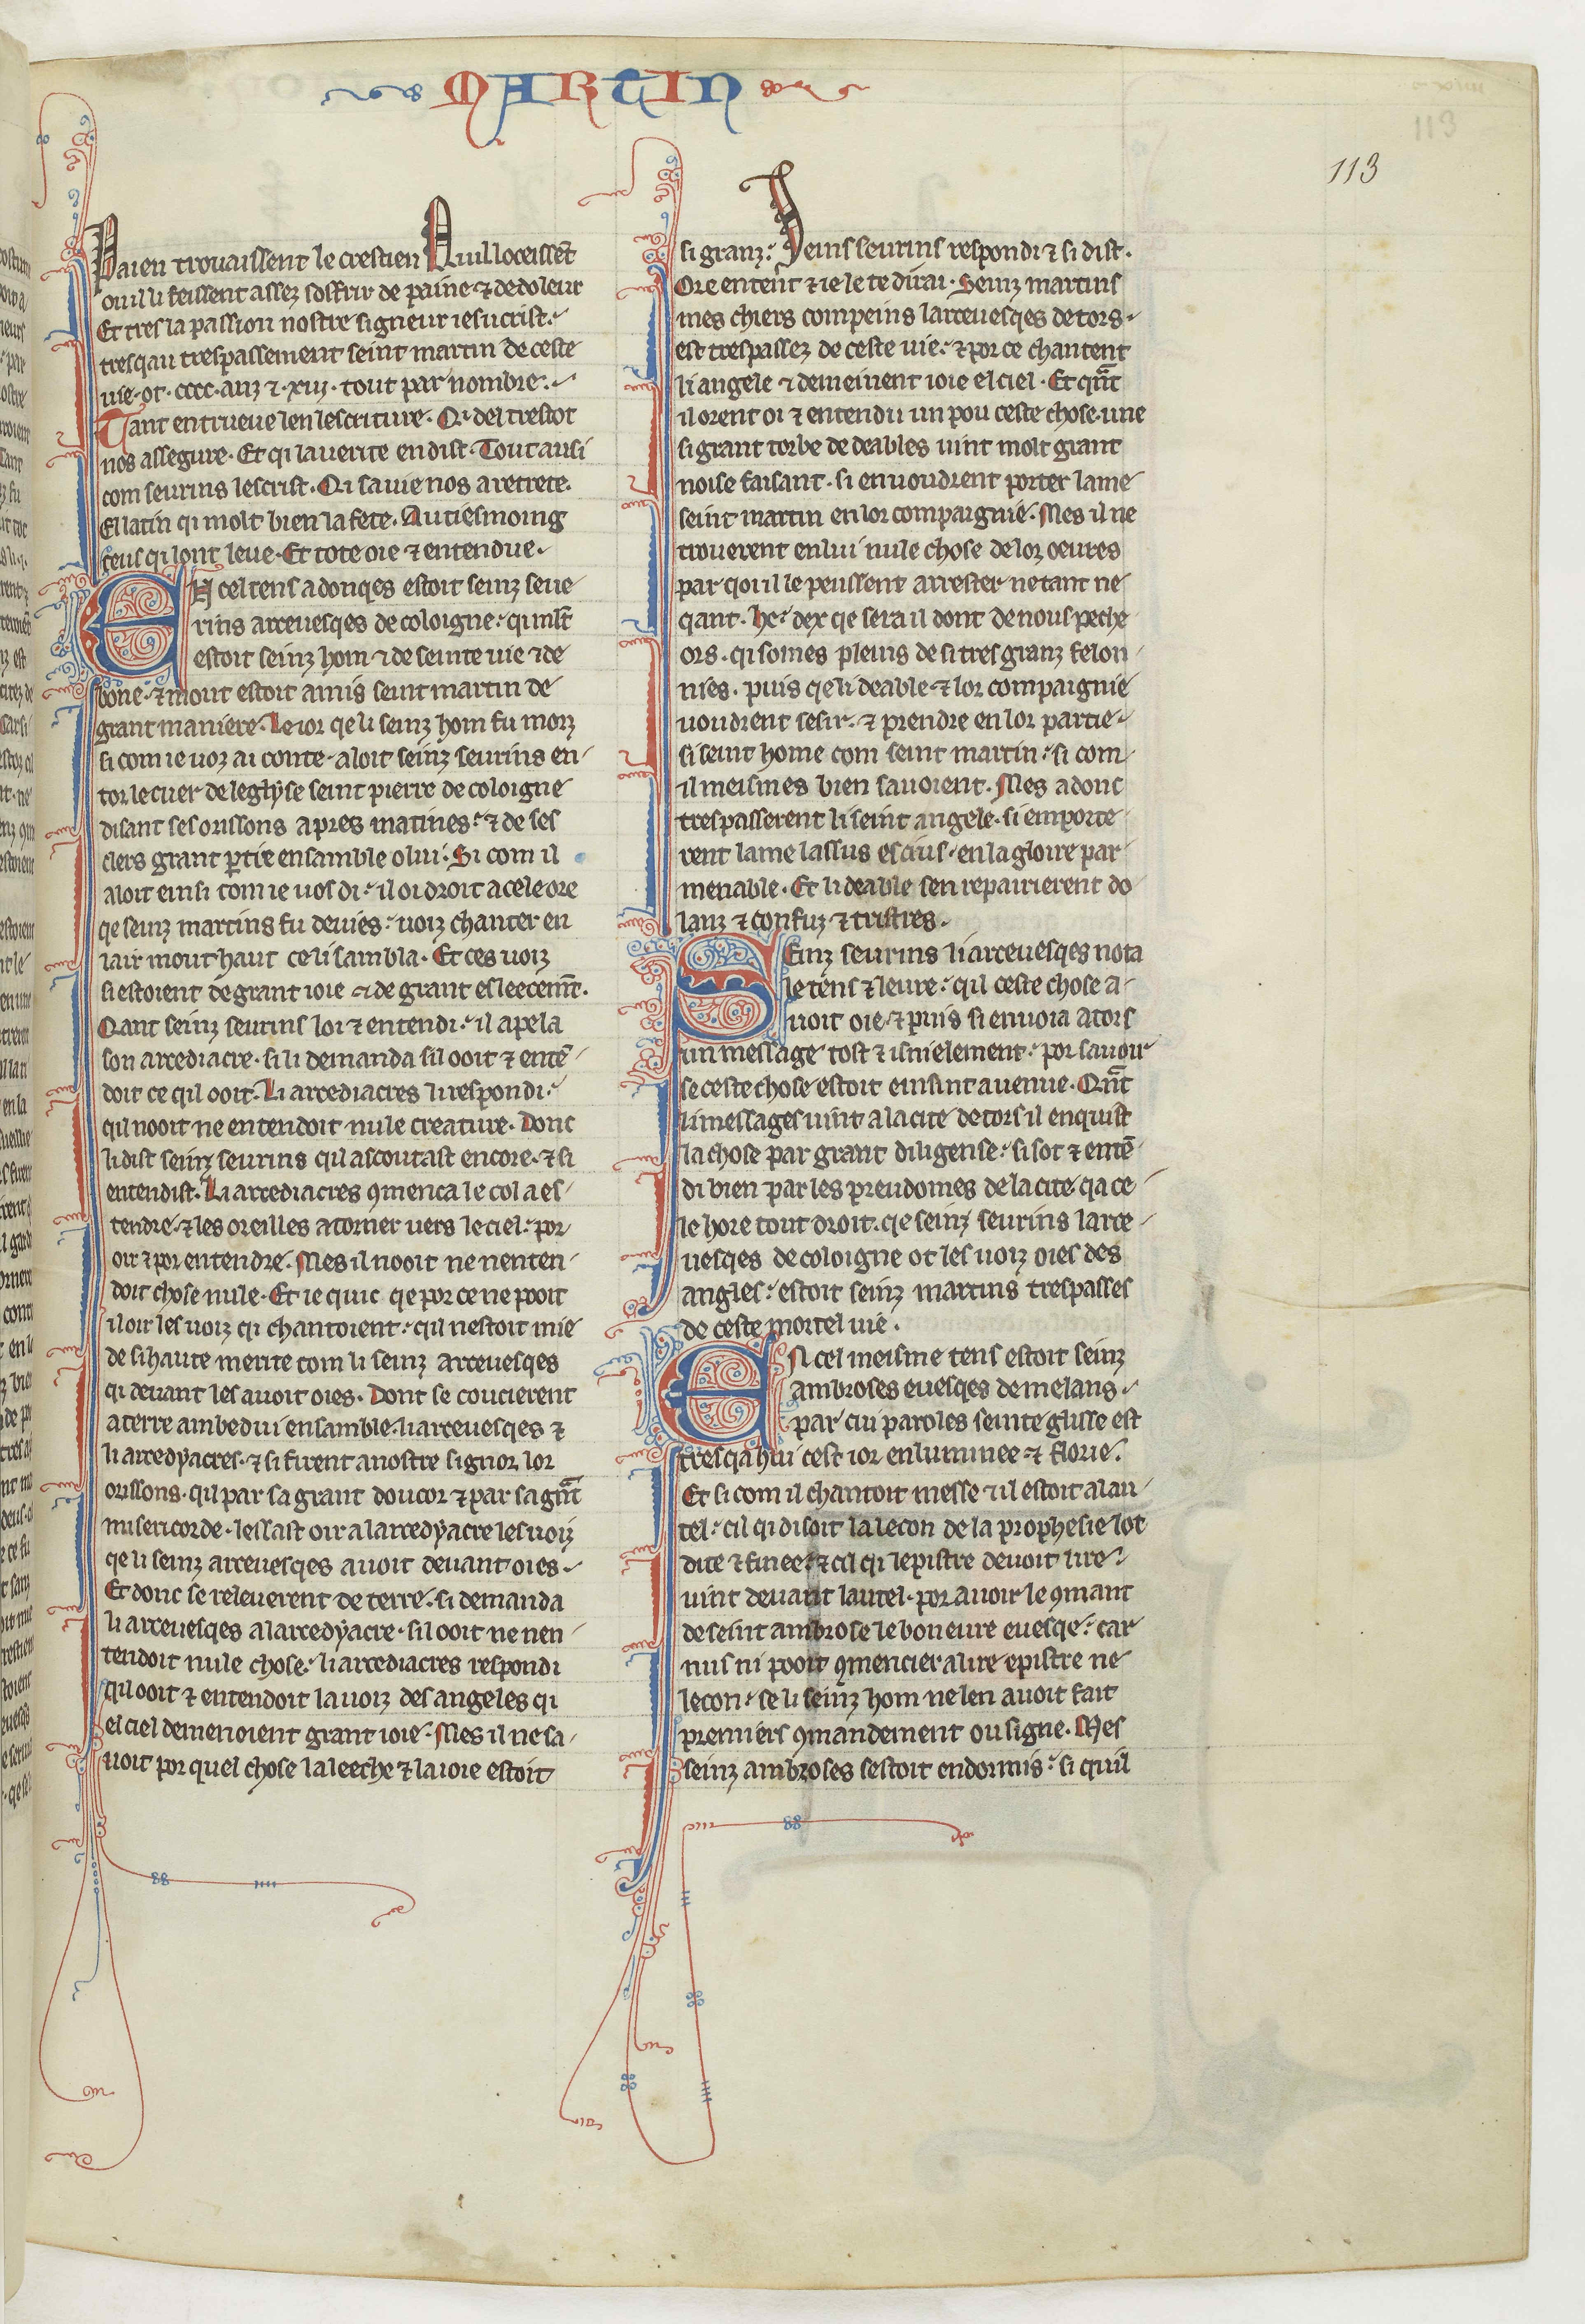 MARTIN
113
Paien trouaissent le crestien Quil loceissēt
ou il li feissent assez soffrir de paine ⁊ de doleur
Et tres la passion nostre signeur iesucrist.
tresqau trespassement seint martin de ceste
uie. ot. cccc. anz ⁊. xij. tout par nombre.
Tant en trueue len lescriture. Qi del trestot
nos assegure. Et qi la uerite en dist. Tout ausi
com seurins lescrist. Qi sa uie nos a retrete.
El latin qi molt bien la fete. Au tiesmoing
ceus qi lont leue. Et tote oie ⁊ entendue.
En cel tens adonqes estoit seinz seue
rins arceuesqes de coloigne. qi mlt̄
estoit seinz hom ⁊ de seinte uie ⁊ de
bone. ⁊ mout estoit amis seint martin de
grant maniere. Le ior qe li seinz hom fu morz
si com ie uoz ai conte. aloit seinz seurins en
tor le cuer de leglyse seint pierre de coloigne
disant ses orissons apres matines. ⁊ de ses
clers grant ptie ensamble o lui. Si com il
aloit einsi com ie uos di. il oi droit a cele ore
qe seinz martins fu deuies. uoiz chanter en
lair mout haut ce li sambla. Et ces uoiz
si estoient de grant ioie ⁊ de grant esleecemt̄.
Qant seinz seurins loi ⁊ entendi. il apela
son arcediacre. si li demanda sil ooit ⁊ entē
doit ce qil ooit. Li arcediacres li respondi.
qil nooit ne entendoit nule creature. Donc
li dist seinz seurins qil ascoutast encore. ⁊ si
entendist. Li arcediacres ꝯmenca le col a es
tendre. ⁊ les oreilles a torner uers le ciel. por
oir ⁊ por entendre. Mes il nooit ne nenten
doit chose nule. Et ie quic qe por ce ne pooit
il oir les uoiz qi chantoient. qil nestoit mie
de si haute merite com li seinz arceuesqes
qi deuant les auoit oies. Dont se coucierent
a terre ambedui ensamble. li arceuesqes ⁊
li arcedyacres. ⁊ si firent a nostre signor lor
orissons. qil par sa grant doucor ⁊ par sa gn̄t
misericorde. lessast oir a larcedyacre les uoiz
qe li seinz arceuesqes auoit deuant oies.
Et donc se releuerent de terre. si demanda
li arceuesqes a larcedyacre. sil ooit ne nen
tendoit nule chose. li arcediacres respondi
qil ooit ⁊ entendoit la uoiz des angeles qi
el ciel demenoient grant ioie. Mes il ne sa
uoit por quel chose la leeche ⁊ la ioie estoit
si granz. Seins seurins respondi ⁊ si dist.
Ore entent ⁊ ie le te dirai. Seinz martins
mes chiers compeins larceuesqes de tors.
est trespassez de ceste uie. ⁊ por ce chantent
li angele ⁊ demeinent ioie el ciel. Et qn̄t
il orent oi ⁊ entendu un pou ceste chose. une
si grant torbe de deables uint molt grant
noise faisant. si en uoudrent porter lame
seint martin en lor compaignie. Mes il ne
trouerent en lui nule chose de lor oeures
par qoi il le peussent arrester ne tant ne
qant. he. dex qe sera il dont de nous peche
ors. qi somes pleins de si tres granz felon
nies. puis qe li deable ⁊ lor compaignie
uoudrent sesir. ⁊ prendre en lor partie
si seint home com seint martin. si com
il meismes bien sauoient. Mes adonc
trespasserent li seint angele. si emporte
rent lame lassus es cius. en la gloire par
menable. Et li deable sen repairierent do
lanz ⁊ confuz ⁊ tristres.
Seinz seurins li arceuesqes nota
le tens ⁊ leure. qil ceste chose a
uoit oie. ⁊ puis si enuoia a tors
un message tost ⁊ isnielement. por sauoir
se ceste chose estoit einsint auenue. Qn̄t
li messages uint a la cite de tors il enquist
la chose par grant diligense. si sot ⁊ entē
di bien par les preudomes de la cite. qa ce
le hore tout droit. qe seinz seurins larce
uesqes de coloigne ot les uoiz oies des
angles. estoit seinz martins trespasses
de ceste mortel uie.
En cel meisme tens estoit seinz
ambroses euesqes de melans.
par cui paroles seinte glisse est
tresqa hui cest ior enluminee ⁊ florie.
Et si com il chantoit messe ⁊ il estoit a lau
tel. cil qi disoit la lecon de la prophesie lot
dite ⁊ finee. ⁊ cil qi lepistre deuoit lire.
uint deuant lautel. por auoir le ꝯmant
de seint ambrose le boneure euesqe. car
nus ni pooit ꝯmencier a lire epistre ne
lecon. se li seinz hom ne len auoit fait
premiers ꝯmandement ou signe. Mes
seinz ambroses sestoit endormis. si quil